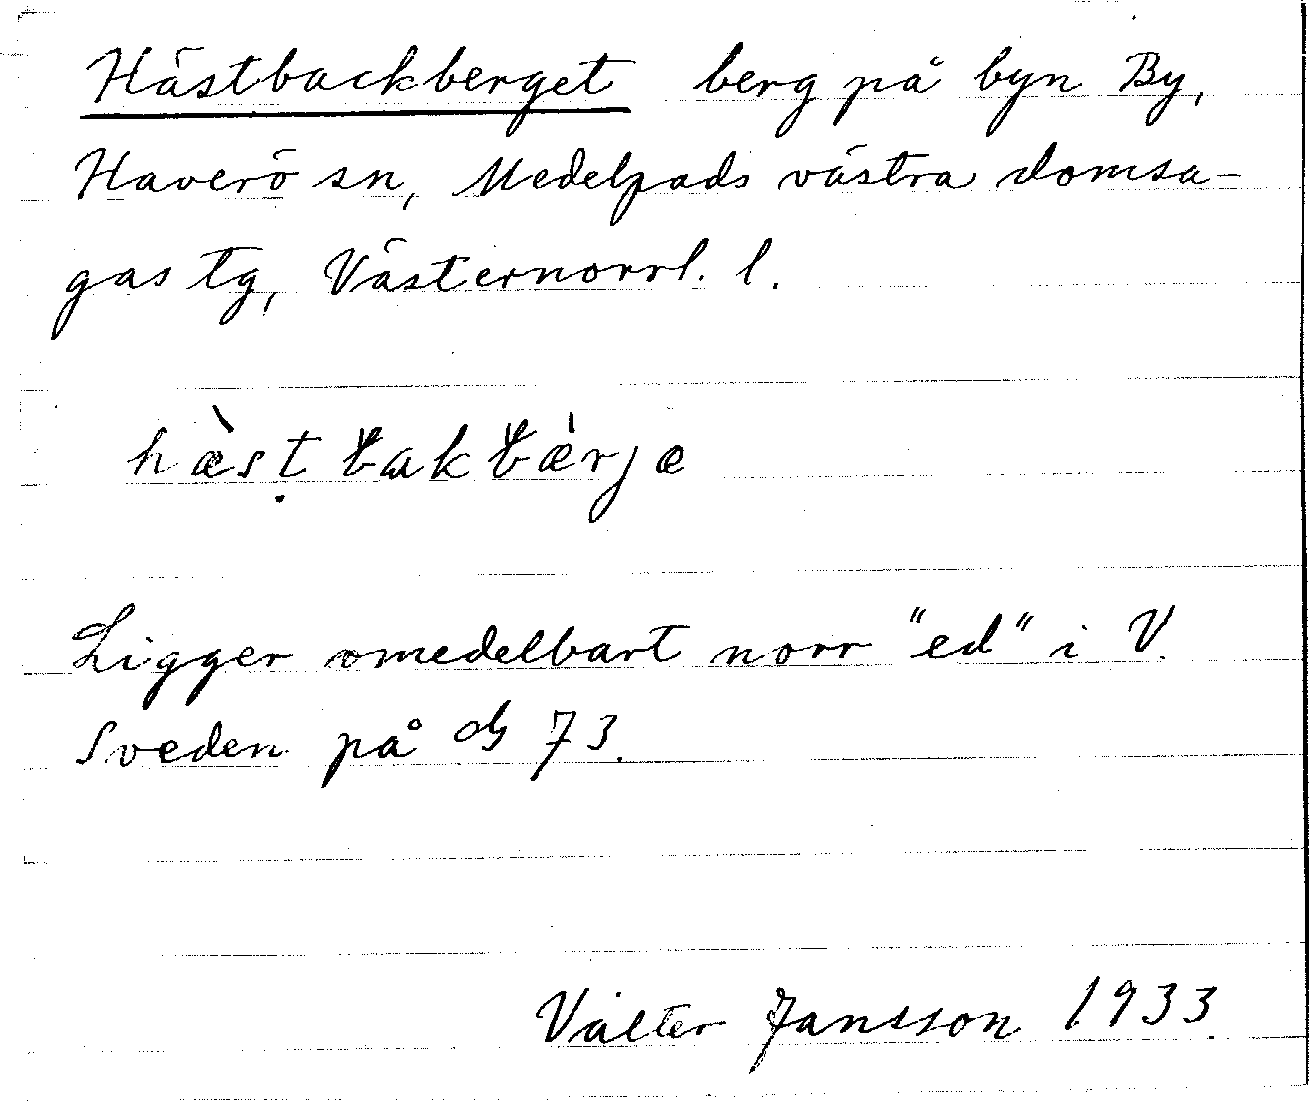 Hästbackberget berg på byn By,
Haverö sn, Medelpads västra domsa-
gas tg, Västernorrl. l.
Ligger omedelbart norr "ed" i V.
Sveden på 73.
Valter Jansson 1933.